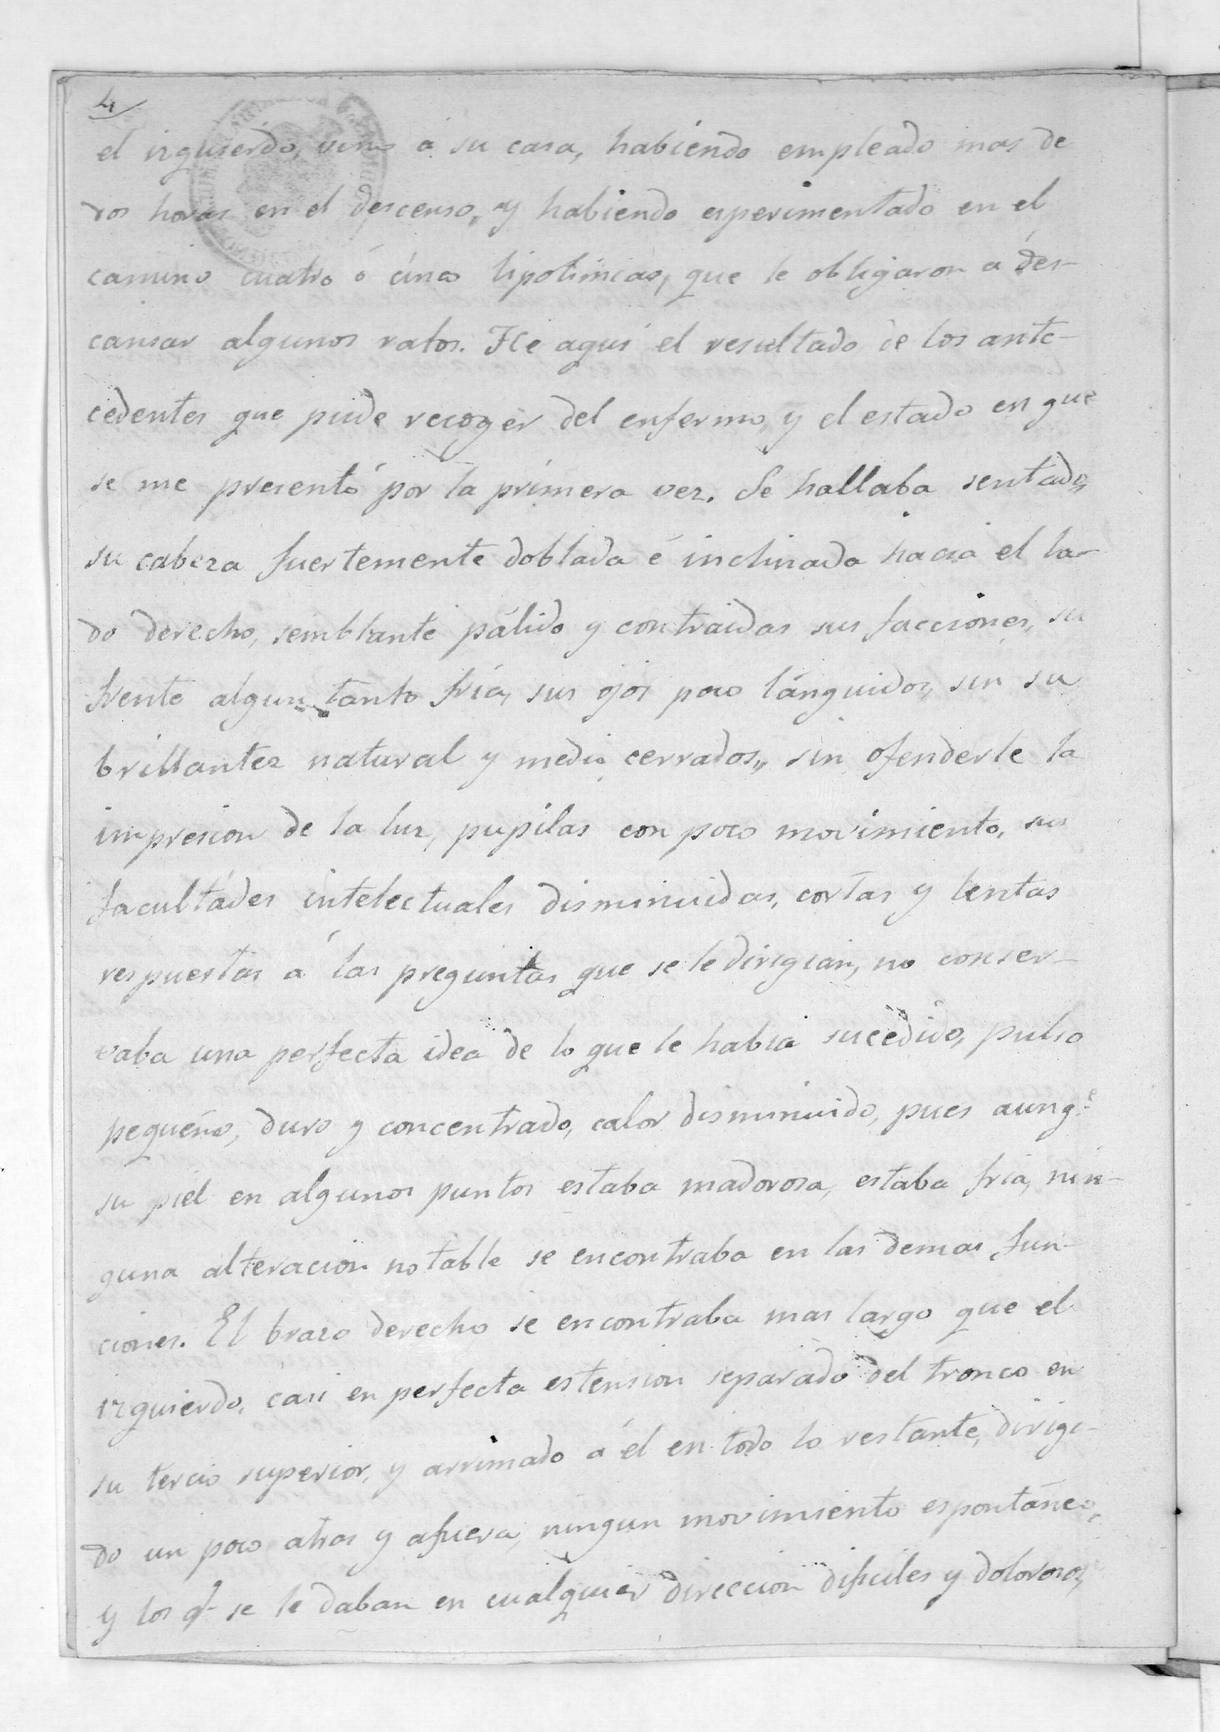 4
el izquierdo, vino á su casa, habiendo empleado mas de
dos horas en el descenso, y habiendo esperimentado en el
camino cuatro ó cinco lipotimias, que le obligaron a des-
cansar algunos ratos. He aqui el resultado de los ante-
cedentes que pude recoger del enfermo, y el estado en que
se me presentó por la primera vez. Se hallaba sentado,
su cabeza fuertemente doblada é inclinada hacia el la-
do derecho, semblante pálido y contraidas sus facciones, su
frente algun tanto fria, sus ojos poco lánguidos, sin su
brillantez natural y medio cerrados, sin ofenderle la
impresion de la luz, pupilas con poco movimiento, sus
facultádes intelectuales disminuidas, cortas y lentas
respuestas á las preguntas que se le dirigian, no conser-
vaba una perfecta idea de lo que le habia sucedido, pulso
pequeño, duro y concentrado, calor disminuido, pues aunq.e
su piel en algunos puntos estaba madorosa, estaba fria, nin-
guna alteracion notable se encontraba en las demas fun-
ciones. El brazo derecho se encontraba mas largo que el
izquierdo, casi en perfecta estension separado del tronco en
su tercio superior, y arrimado á él en todo lo restante, dirigi-
do un poco atras y afuera, ningun movimiento espontáneo,
y los q.e se le daban en cualquier direccion dificiles y dolorosos,